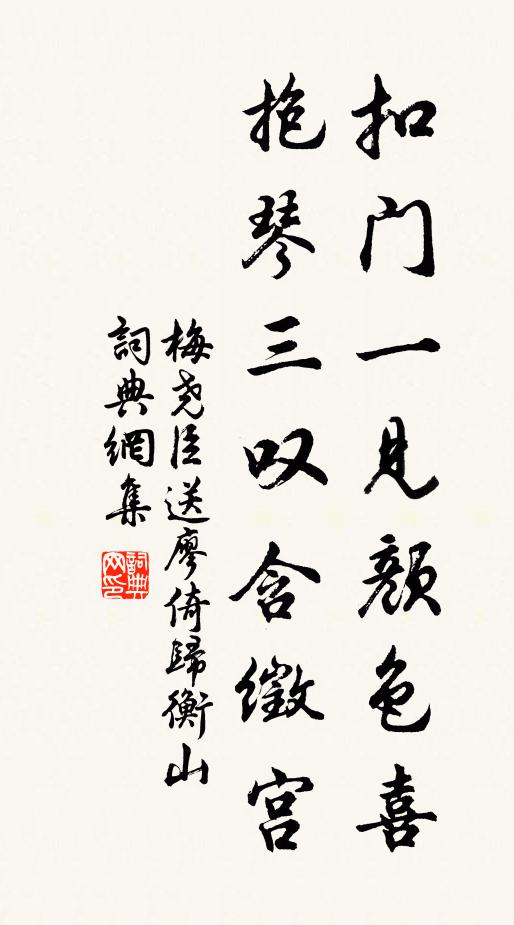 扣门一见颜色喜
抱琴三叹含徵宫
梅尧臣送廖倚歸衡山
詞典網集
詞典
网印